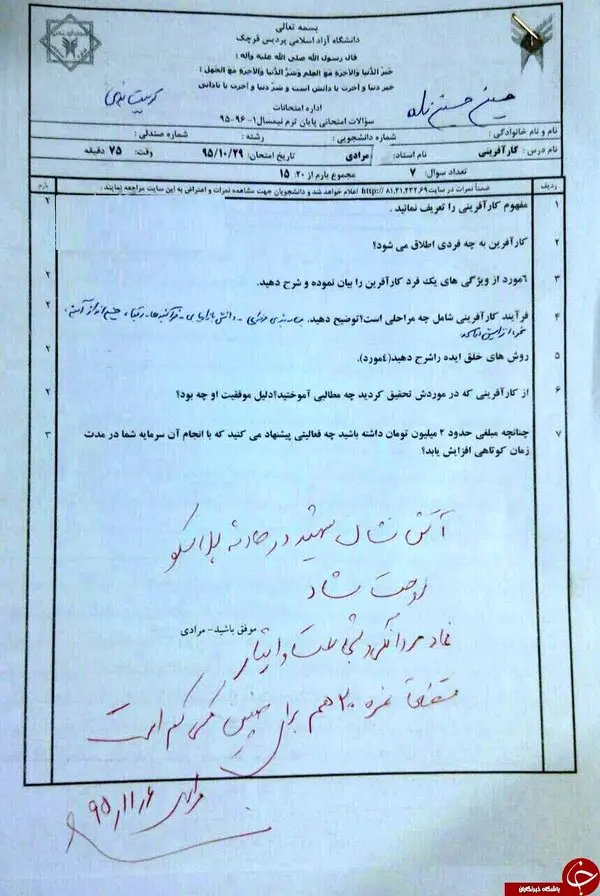 بسمه تعالی
دانشگاه آزاد اسلامی پردیس قرچک
قال رسول الله صلی الله علیه وآله:
خیرُ الدُنیا وَالآخِرةِ مَعَ العِلمِ وشَرُّ الدُنیا وَالآخِرةِ مَعَ الجَهلِ:
خیر دنیا و آخرت با دانش است و شر دنیا و آخرت با نادانی
اداره امتحانات
سؤالات امتحانی پایان ترم نیمسال۱-۹۶-۹۵
مدیریت
حسین حسین زاده
نام و نام خانوادگی: شماره دانشجویی: رشته: شماره صندلی:
نام درس: کارآفرینی نام استاد: مرادی تاریخ امتحان: ۹۵/۱۰/۲۹ وقت: ۷۵ دقیقه
تعداد سوال: ۷ مجموع بارم از ۲۰: ۱۵
ردیف ضمناً نمرات در سایت http:// ۸۱,۳۱,۲۳۲,۶۹ اعلام خواهد شد و دانشجویان جهت مشاهده نمرات و اعتراض به این سایت مراجعه نمایند: بارم
۱ مفهوم کارآفرینی را تعریف نمائید . ۲
۲ کارآفرین به چه فردی اطلاق می شود؟
۳ ۶مورد از ویژگی های یک فرد کارآفرین را بیان نموده و شرح دهید. ۲
۴ فرآیند کارآفرینی شامل چه مراحلی است؟توضیح دهید. ۲
۵ روش های خلق ایده راشرح دهید(۴مورد). ۲
۶ از کارآفرینی که در موردش تحقیق کردید چه مطالبی آموختید؟دلیل موفقیت او چه بود؟ ۲
۷ چنانچه مبلغی حدود ۲ میلیون تومان داشته باشید چه فعالیتی پیشنهاد می کنید که با انجام آن سرمایه شما در مدت ۳
زمان کوتاهی افزایش یابد؟
آتش نشان شهید در حادثه پلاسکو
روحت شاد
موفق باشید- مرادی
نماد مردانگی و شجاعت و ایثار
نمره ۲۰ هم برای کم است
مرادی ۹۵/۱۱/۶
باشگاه خبرنگاران